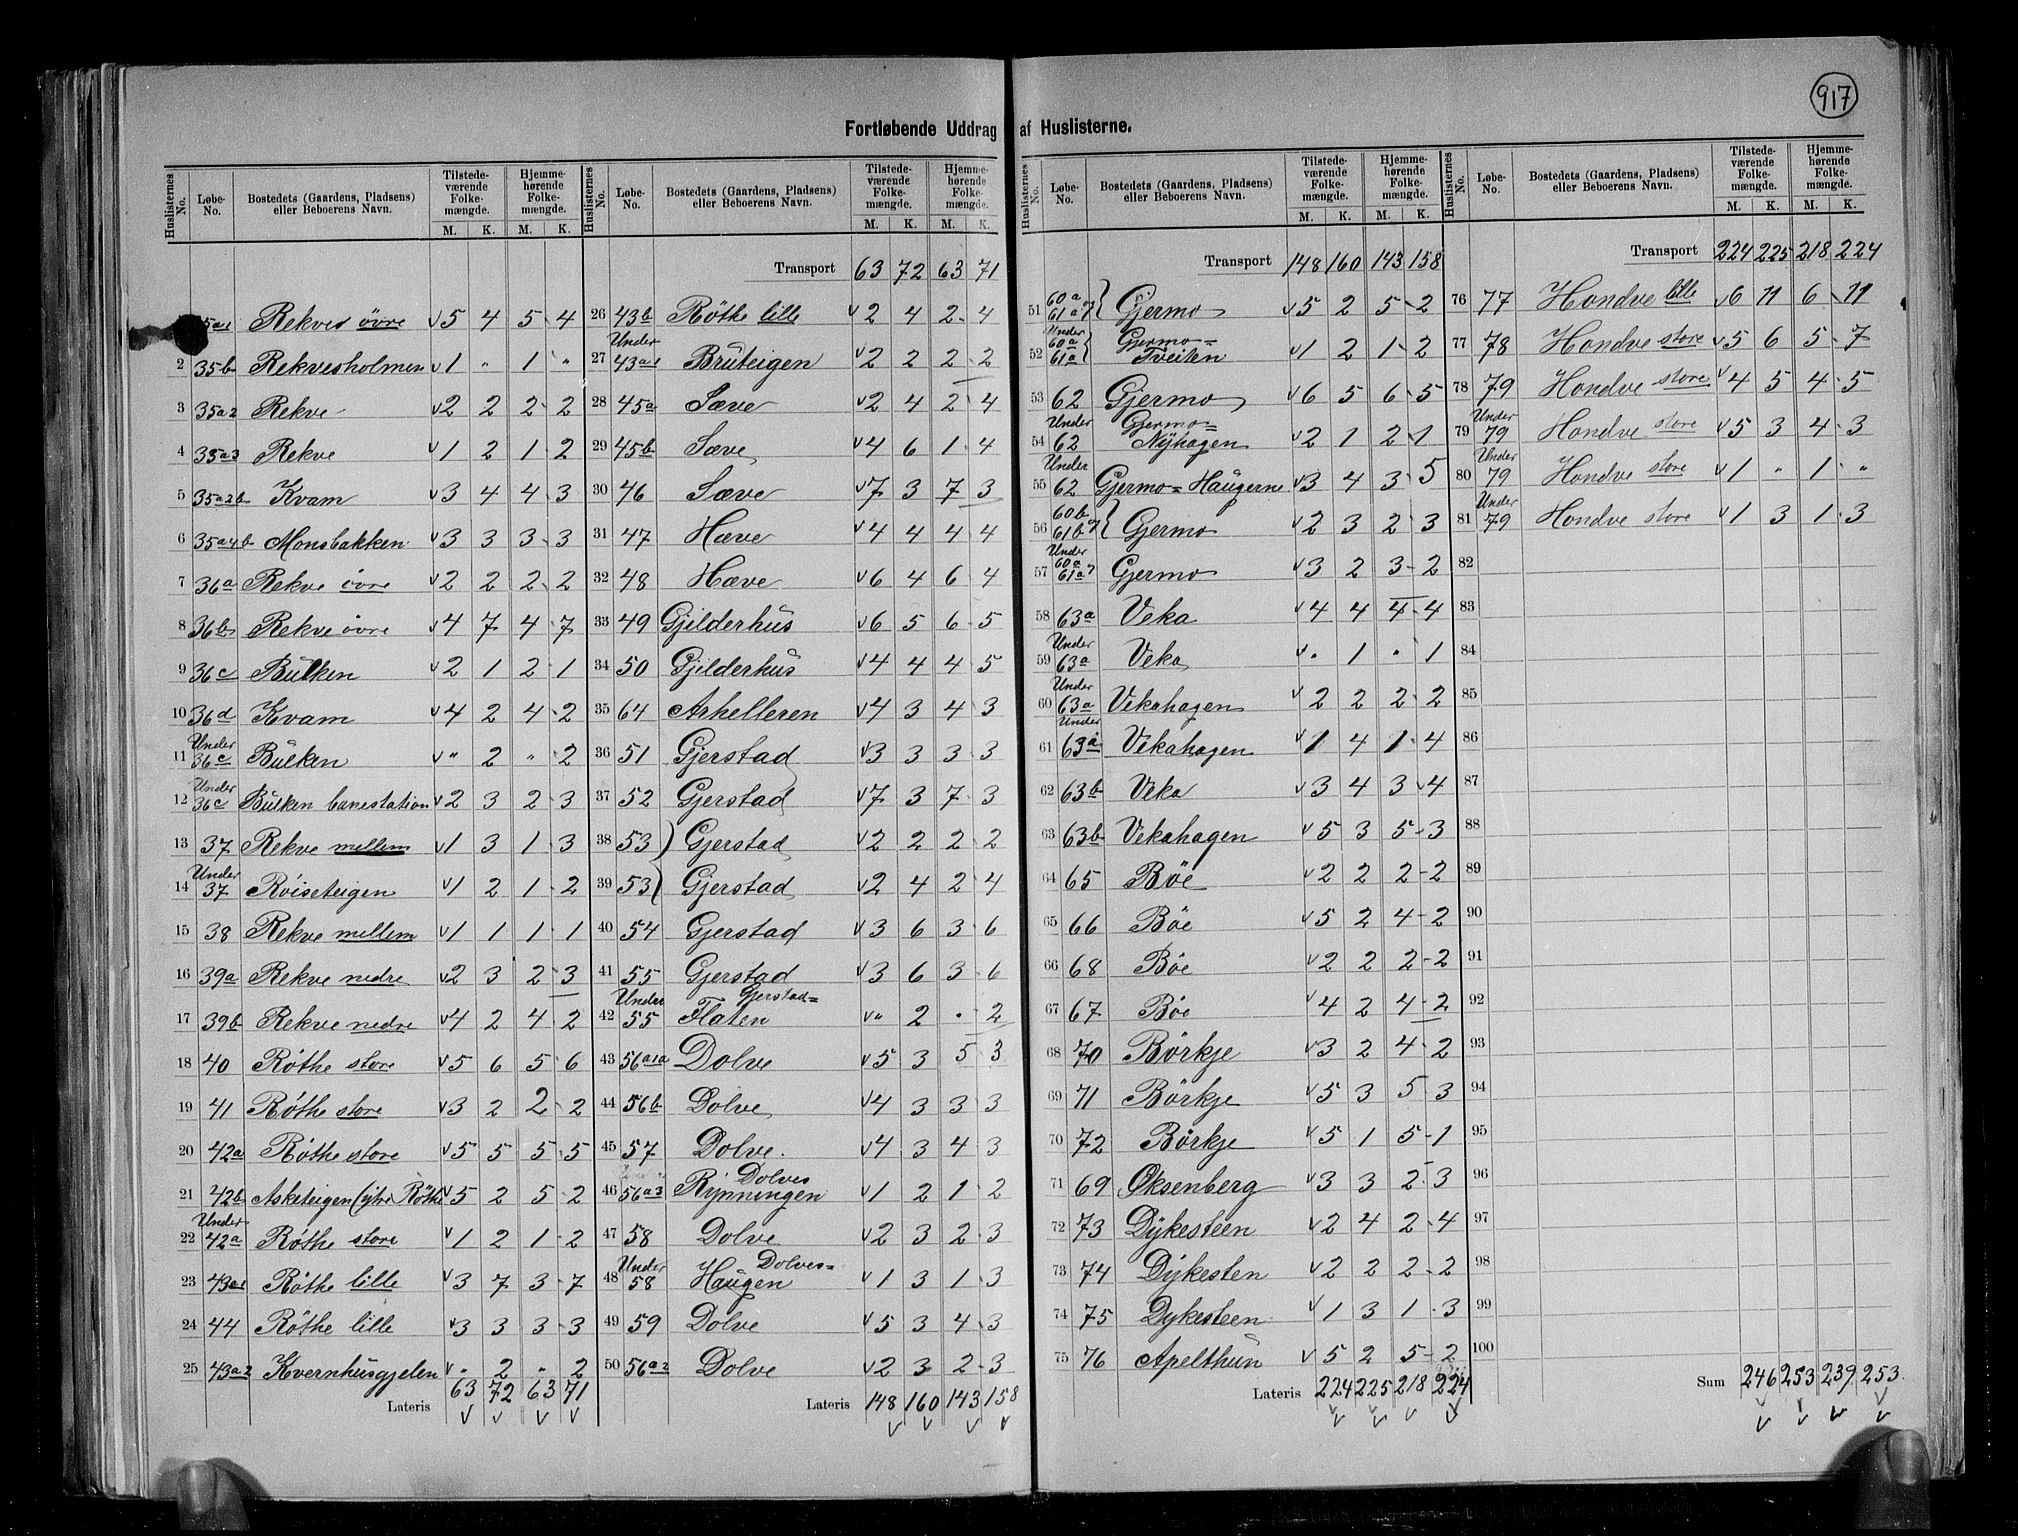 917
Fortløbende Uddrag af Huslisterne.
Huslisternes No. Løbe-No. Bostedets (Gaardens, Pladsens) eller Beboerens Navn. Tilstedeværende Folkemængde. Hjemmehørende Folkemængde.
M. K. M. K.
Transport 63 72 63 71
Transport 148 160 143 158
Transport 224 225 218 224
35a1 Rekve øvre 5 4 5 4
2 35b Rekvesholmen 1 " 1 "
3 35a2 Rekve 2 2 2 2
4 35a3 Rekve 1 2 1 2
5 35a2b Kvam 3 4 4 3
6 35a4b Monsbakken 3 3 3 3
7 36a Rekve øvre 2 2 2 2
8 36b Rekve øvre 4 7 4 7
9 36c Bulken 2 1 2 1
10 36d Kvam 4 2 4 2
11 Under 36c Bulken " 2 " 2
12 Under 36c Bulken banestation 2 3 2 3
13 37 Rekve mellem 1 3 1 3
14 Under 37 Röiseteigen 1 2 1 2
15 38 Rekve mellem 1 1 1 1
16 39a Rekve nedre 2 3 2 3
17 39b Rekve nedre 4 2 4 2
18 40 Röthe store 5 6 5 6
19 41 Röthe store 3 2 2 2
20 42a Röthe store 5 5 5 5
21 42b Asketeigen (ytre Röthe 5 2 5 2
22 Under 42a Röthe store 1 2 1 2
23 43a1 Röthe lille 3 7 3 7
24 44 Röthe lille 3 3 3 3
25 43a2 Kvernhusgjelen " 2 " 2
Lateris 63 72 63 71
26 43b Röthe lille 2 4 2 4
27 Under 43a1 Bruteigen 2 2 2 2
28 45a Sæve 2 4 2 4
29 45b Sæve 4 6 1 4
30 46 Sæve 7 3 7 3
31 47 Hæve 4 4 4 4
32 48 Hæve 6 4 6 4
33 49 Gjilderhus 6 5 6 5
34 50 Gjilderhus 4 4 4 5
35 64 Arhelleren 4 3 4 3
36 51 Gjerstad 3 3 3 3
37 52 Gjerstad 7 3 7 3
38 53 ) Gjerstad 2 2 2 2
39 53 ( Gjerstad 2 4 2 4
40 54 Gjerstad 3 6 3 6
41 55 Gjerstad 3 6 3 6
42 Under 55 Gjerstad= Flaten " 2 " 2
43 56a1a Dolve 5 3 5 3
44 56b Dolve 4 3 3 3
45 57 Dolve. 4 3 4 3
46 56a3 Dolves Rynningen 1 2 1 2
47 58 Dolve 2 3 2 3
48 Under 58 Dolves= Haugen 1 3 1 3
49 59 Dolve 5 3 4 3
50 56a2 Dolve 2 3 2 3
Lateris 148 160 143 158
51 60a 61a { Gjermo 5 2 5 2
52 Under 60a 61a { Gjermo= Tveiten 1 2 1 2
53 62 Gjermo 6 5 6 5
54 Under 62 Gjermo= Nyhagen 2 1 2 1
55 Under 62 Gjermo= Haugerne 3 4 3 5
56 60b 61b { Gjermo 2 3 2 3
57 Under 60a 61a Gjermo 3 2 3 2
58 63a Veka 4 4 4 4
59 Under 63a Veka " 1 " 1
60 Under 63a Vekahagen 2 2 2 2
61 Under 63a Vekahagen 1 4 1 4
62 63b Veka 3 4 3 4
63 63b Vekahagen 5 3 5 3
64 65 Böe 2 2 2 2
65 66 Böe 5 2 4 2
66 68 Böe 2 2 2 2
67 67 Böe 4 2 4 2
68 70 Börkje 3 2 4 2
69 71 Börkje 5 3 5 3
70 72 Börkje 5 1 5 1
71 69 Øksenberg 3 3 2 3
72 73 Dykesteen 2 4 2 4
73 74 Dykesten 2 2 2 2
74 75 Dykesteen 1 3 1 3
75 76 Apelthun 5 2 5 2
Lateris 224 225 218 224
76 77 Hondve lille 6 11 6 11
77 78 Hondve store 5 6 5 7
78 79 Hondve store 4 5 4 5
79 Under 79 Hondve store 5 3 4 3
80 Under 79 Hondve store 1 " 1 "
81 Under 79 Hondve store 1 3 1 3
82
83
84
85
86
87
88
89
90
91
92
93
94
95
96
97
98
99
100
Sum 246 253 239 253